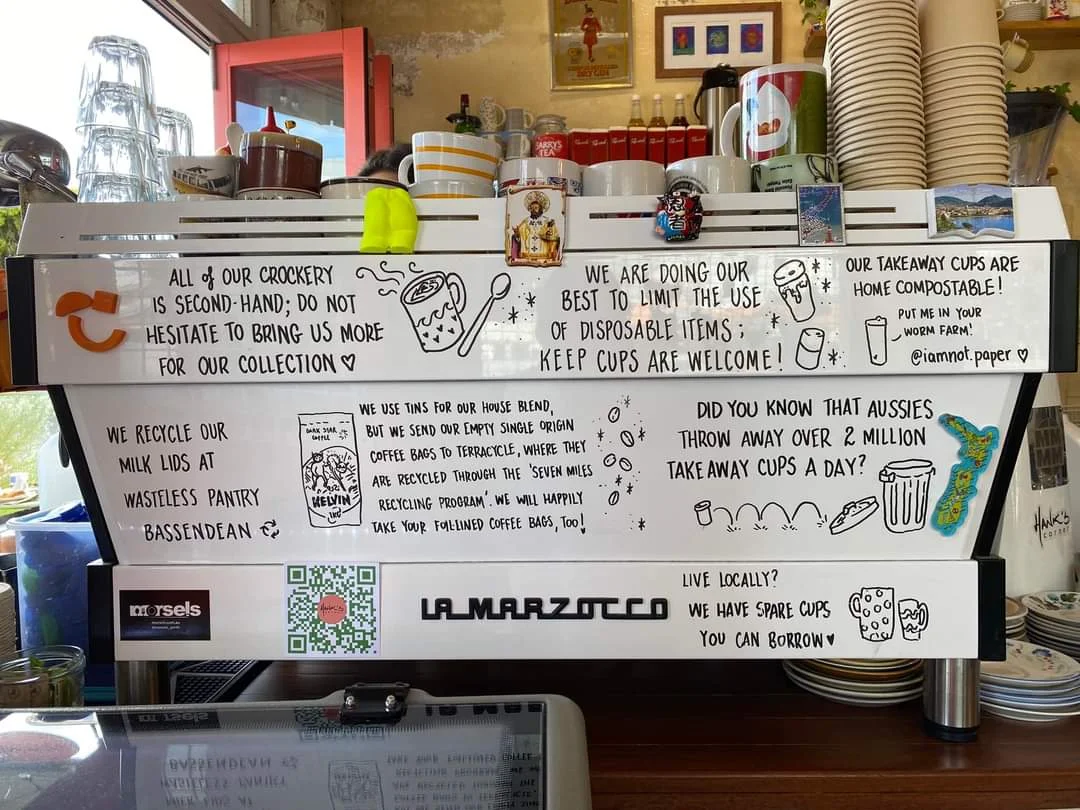 BARRY'S
TEA
ALL of OUR CROCKERY
IS SECOND-HAND; DO NOT
HESITATE TO BRING US MORE
FOR OUR COLLECTION ♡
WE ARE DOING OUR
BEST TO LIMIT THE USE
OF DISPOSABLE ITEMS;
KEEP CUPS ARE WELCOME!
OUR TAKEAWAY CUPS ARE
HOME COMPOSTABLE!
PUT ME IN YOUR
WORM FARM!
@iamnot.paper ♡
WE RECYCLE OUR
MILK LIDS AT
WASTELESS PANTRY
BASSENDEAN
DARK STAR
COFFEE
KELVIN
WE USE TINS FOR OUR HOUSE BLEND,
BUT WE SEND OUR EMPTY SINGLE ORIGIN
COFFEE BAGS TO TERRACYCLE, WHERE THEY
ARE RECYCLED THROUGH THE 'SEVEN MILES
RECYCLING PROGRAM'. WE WILL HAPPILY
TAKE YOUR FOIL-LINED COFFEE BAGS, TOO!
DID YOU KNOW THAT AUSSIES
THROW AWAY OVER 2 MILLION
TAKEAWAY CUPS A DAY?
HANK'S
corner
morsels
HANK'S
LA MARZOCCO
LIVE LOCALLY?
WE HAVE SPARE CUPS
YOU CAN BORROW ♥